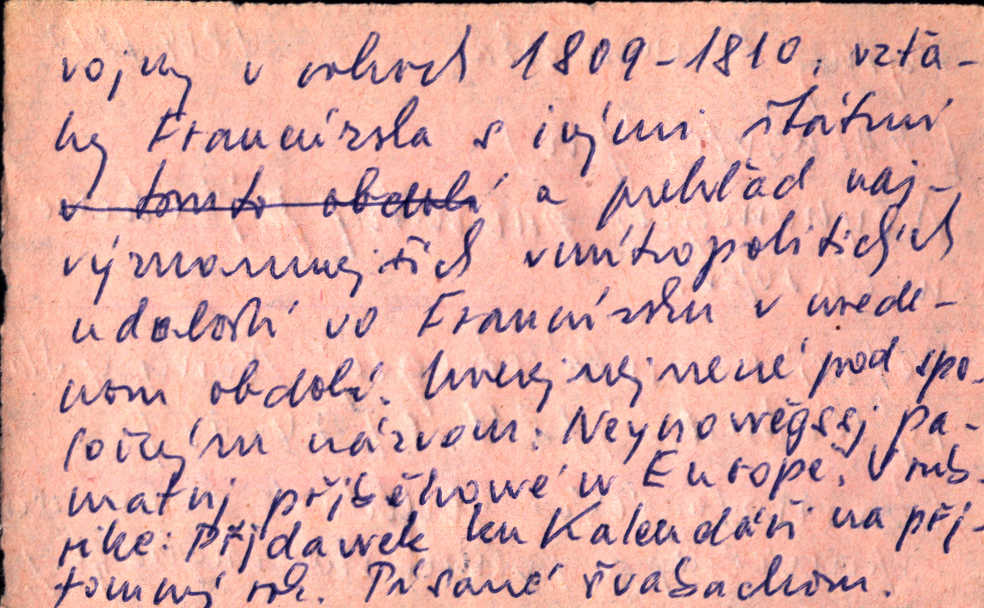 vojny v rokoch 1809-1810, vzťa-
hy Francúzska s inými štátmi
v tomto období a prehľad naj-
význmamnejších vnútropolitických
udalostí vo Francúzsku v uvede-
nom období. Uverejnené pod spo-
ločným názvom: Neynowěgssj pa-
mätnj přjběhowé w Europě. V rub-
rike: Přjdawek ku Kalendáři na přj-
tomný rok. Písané švabachom.